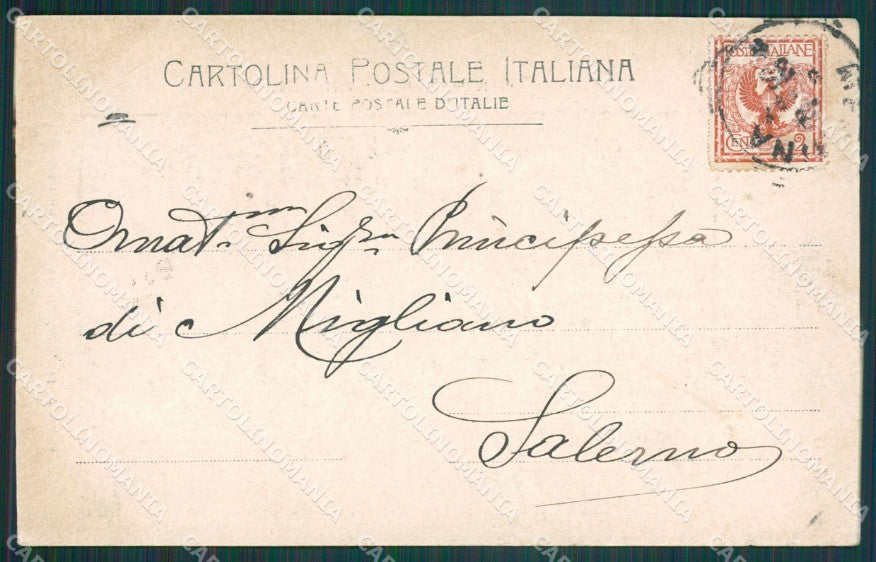 CARTOLINA POSTALE ITALIANA
CARTE POSTALE D'ITALIE
POSTE ITALIANE
CENT 2
Ornat.ma Sig.ra Principessa
di Migliano
Salerno
CARTOLINOMANIA